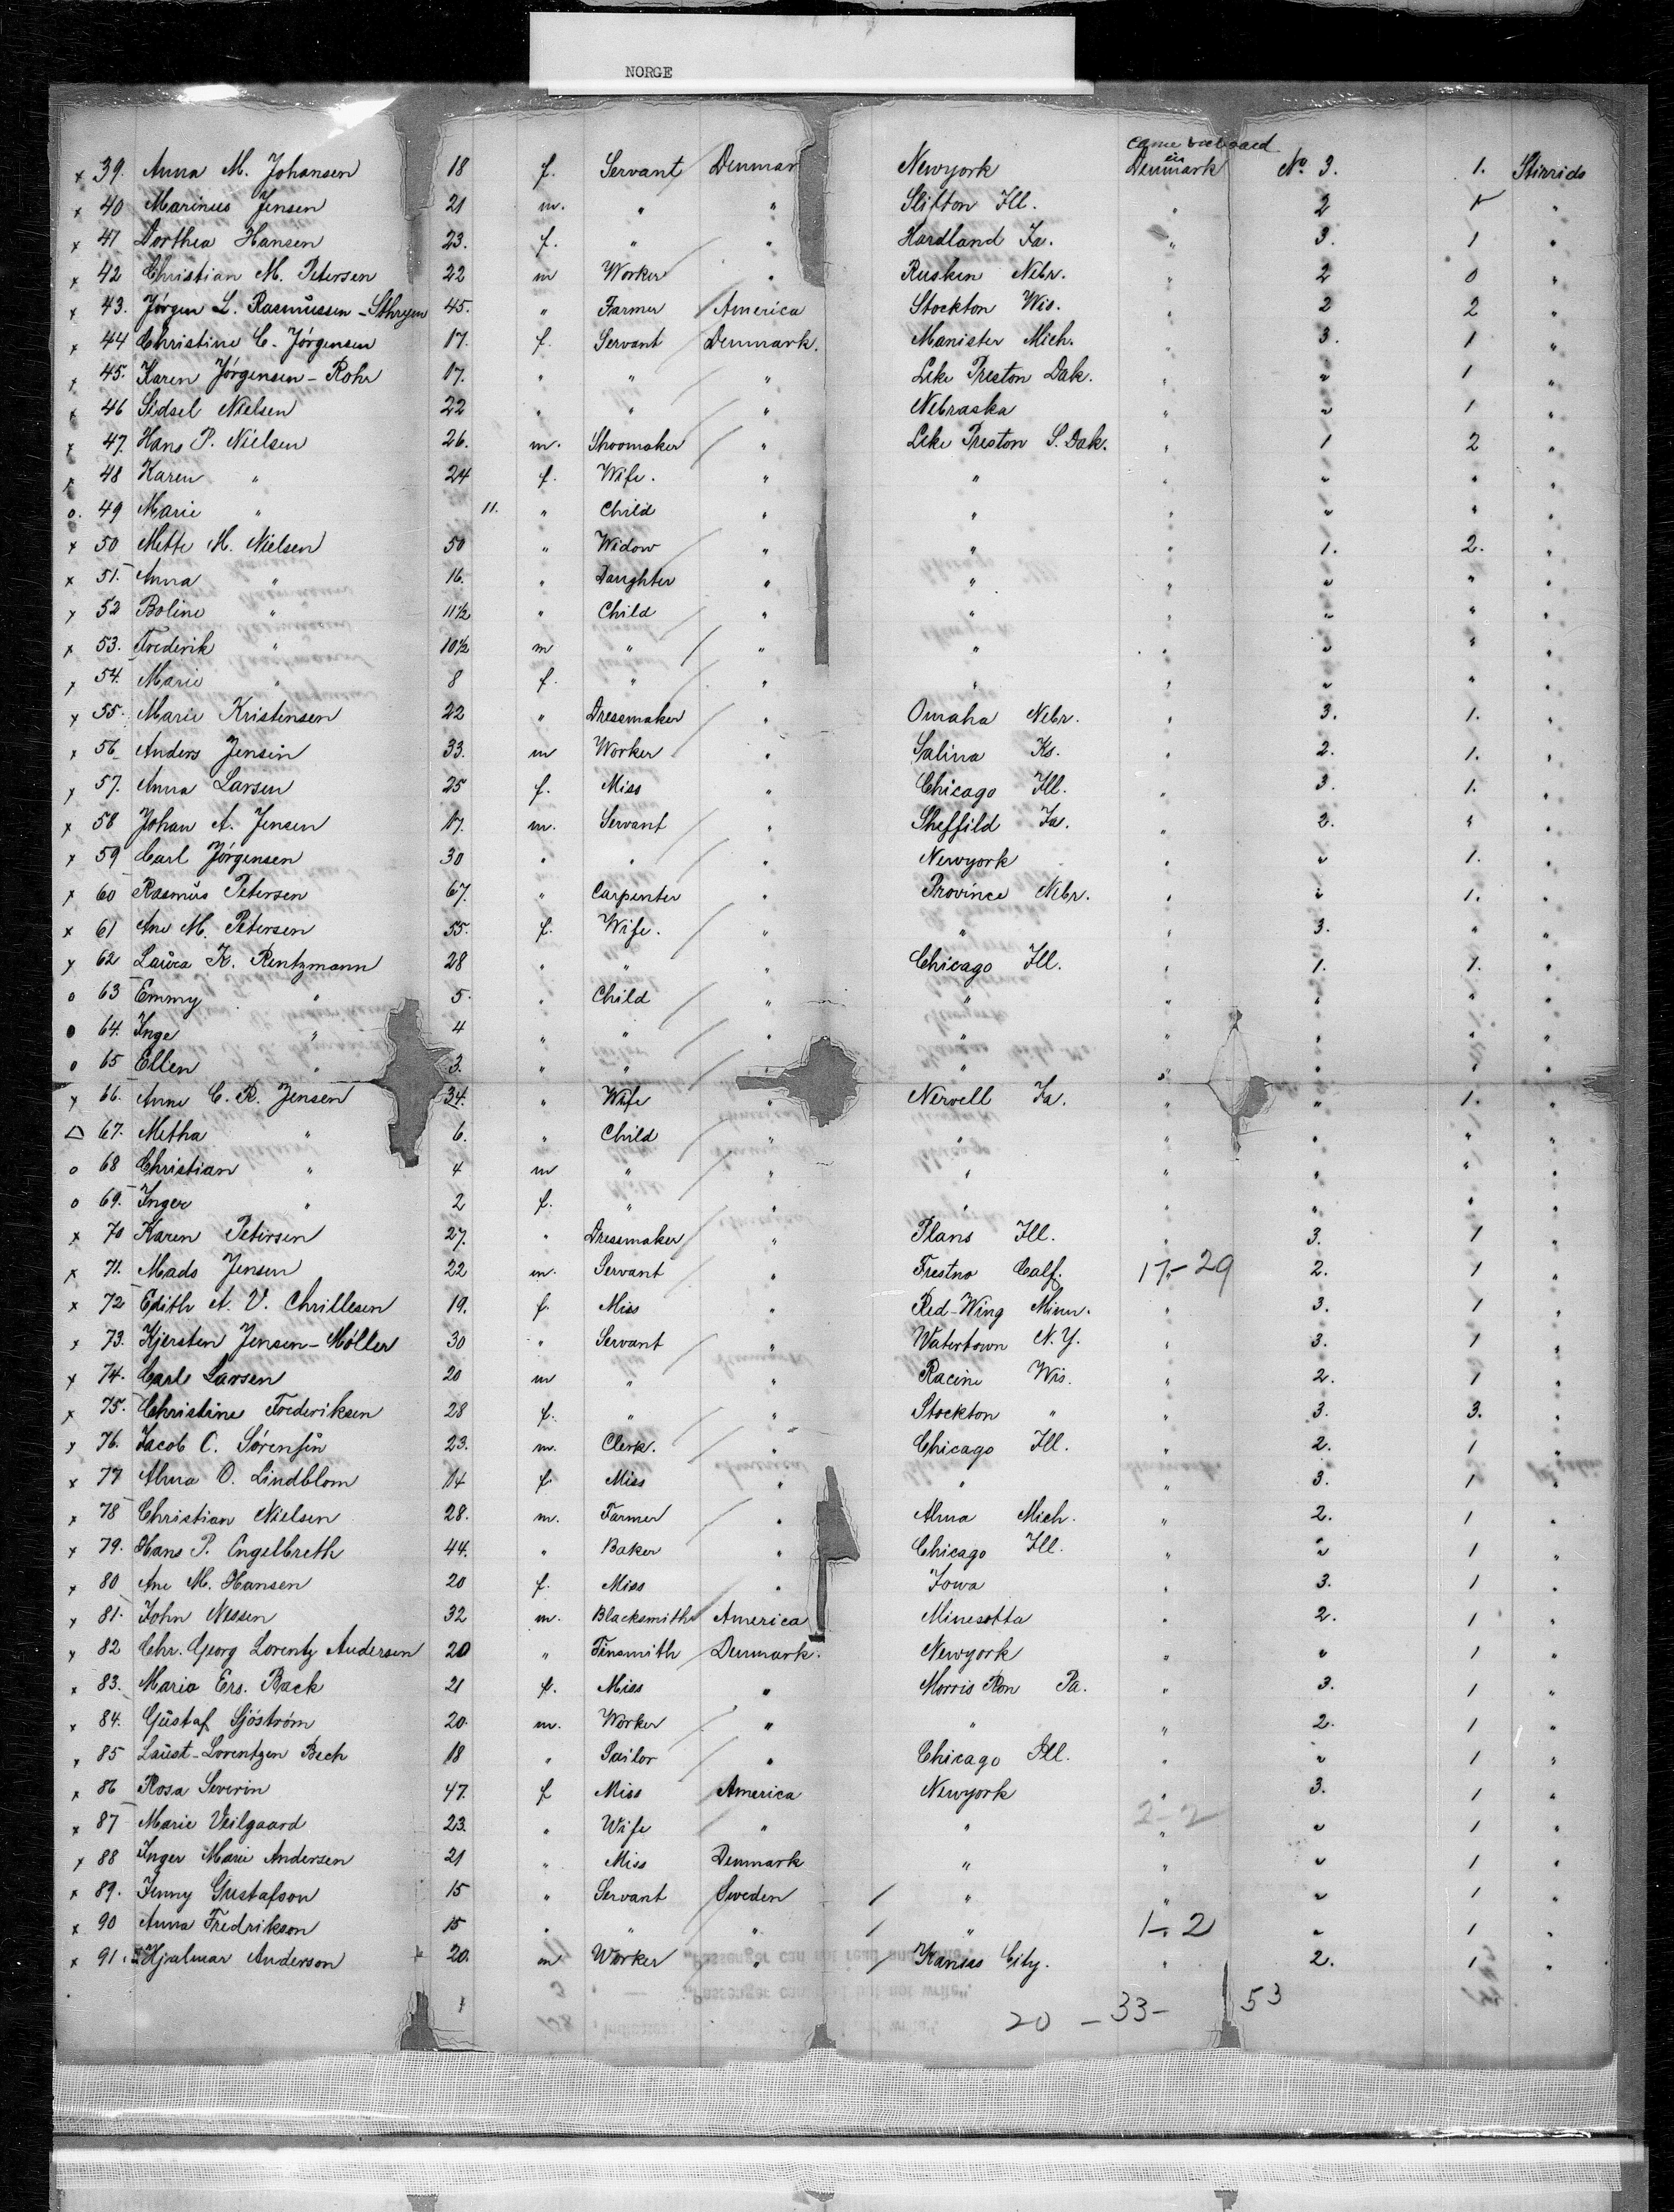 NORGE
came on board
x 39. Anna M. Johansen 18 f. Servant Denmar Newyork in Denmark No. 3. 1.
x 40 Marinus Jensen 21 m. " " Ill. " 2 "
x 41 Dorthea Hansen 23. f. " " Hardland Ia. " 3. 1 "
x 42 Christian M. Petersen 22 m Worker " Ruskin Nebr. " 2 0 "
x 43. Jørgen L. Rasmussen - 45. " Farmer America Stockton Wis. " 2 2 "
x 44 Christine C. Jørgensen 17. f. Servant Denmark. Manister Mich. " 3. 1 "
x 45. Karen Jørgensen - Rohr 17. " " " Leke Preston Dak. " " 1 "
x 46 Sidsel Nielsen 22 " " " Nebraska " " 1 "
x 47. Hans P. Nielsen 26. m. Shoomaker " Leke Preston S. Dak. " 1 2 "
x 48 Karen " 24 f. Wife. " " " " " "
o. 49 Marie " 11. " Child " " " " " "
x 50 Mette M. Nielsen 50 " Widow " " " 1. 2. "
x 51. Anna " 16. " Daughter " " " " " "
x 52 Boline " 11½ " Child " " " " " "
x 53. Frederik " 10½ m " " " " " " "
x 54. Marie " 8 f. " " " " " " "
x 55. Marie Kristensen 22 " Dressmaker " Omaha Nebr. " 3. 1. "
x 56 Anders Jensen 33. m Worker " Salina Ks. " 2. 1. "
x 57. Anna Larsen 25 f. Miss " Chicago Ill. " 3. 1. "
x 58 Johan A. Jensen 17. m. Servant " Sheffild Ia. " 2. " "
x 59 Carl Jørgensen 30 " " " Newyork " " 1. "
x 60 Rasmus Petersen 67. " Carpenter " Province Nebr. " " 1. "
x 61 Ane M. Petersen 55. f. Wife. " " " 3. " "
x 62 Laura K. Rentzmann 28 " " " Chicago Ill. " 1. 1. "
o 63 Emmy " 5. " Child " " " " " "
o 64. Inge " 4 " " " " " " " "
o 65 Ellen " 3. " " " " " " " "
x 66. Anne C. R. Jensen 34. " Wife " Nervell Ia. " " 1. "
△ 67. Metha " 6. " Child " " " " " "
o 68 Christian " 4 m " " " " " " "
o 69. Inger " 2 f. " " " " " " "
x 70 Karen Petersen 27. " Dressmaker " Plano Ill. " 3. 1 "
x 71. Mads Jensen 22 m. Servant " Frestno Calf. 17-29 2. 1 "
x 72 Edith A. V. Chrillesen 19. f. Miss " Red-Wing Minn. " 3. 1 "
x 73. Kjersten Jensen - Møller 30 " Servant " Watertown N. Y. " 3. 1 "
x 74. Carl Larsen 20 m " " Racine Wis. " 2. 1 "
x 75. Christine Frederiksen 28 f. " " Stockton " " 3. 3. "
x 76. Jacob C. Sørensen 23. m. Clerk. " Chicago Ill. " 2. 1 "
x 77 Alma O. Lindblom 14 f. Miss " " " 3. 1 "
x 78 Christian Nielsen 28. m. Farmer " Alma Mich. " 2. 1 "
x 79. Hans P. Engelbreth 44. " Baker " Chicago Ill. " " 1 "
x 80 Ane M. Hansen 20 f. Miss " Iowa " 3. 1 "
x 81. John Nessen 32 m. Blacksmith America Minesotta " 2. 1 "
x 82 Chr. Georg Lorentz Andersen 20 " Tinsmith Denmark. Newyork " " 1 "
x 83. Maria Ers. Back 21 f. Miss " Morris Ron Pa. " 3. 1 "
x 84. Gustaf Sjöström 20. m. Worker " " " 2. 1 "
x 85 Laust-Lorentzen Bech 18 " Sailor " Chicago Ill. " " 1 "
x 86 Rosa Severin 47. f Miss America Newyork " 3. 1 "
x 87 Marie Veilgaard 23. " Wife " " 2-2 " " 1 "
x 88 Inger Marie Andersen 21 " Miss Denmark " " " 1 "
x 89. Jenny Gustafson 15 " Servant Sweden " " " 1 "
x 90 Anna Fredrikson 15 " " " " 1-2 " 1 "
x 91. Hjalmar Anderson 20. m Worker " Kansas City. " 2. 1 "
20 - 33- 53